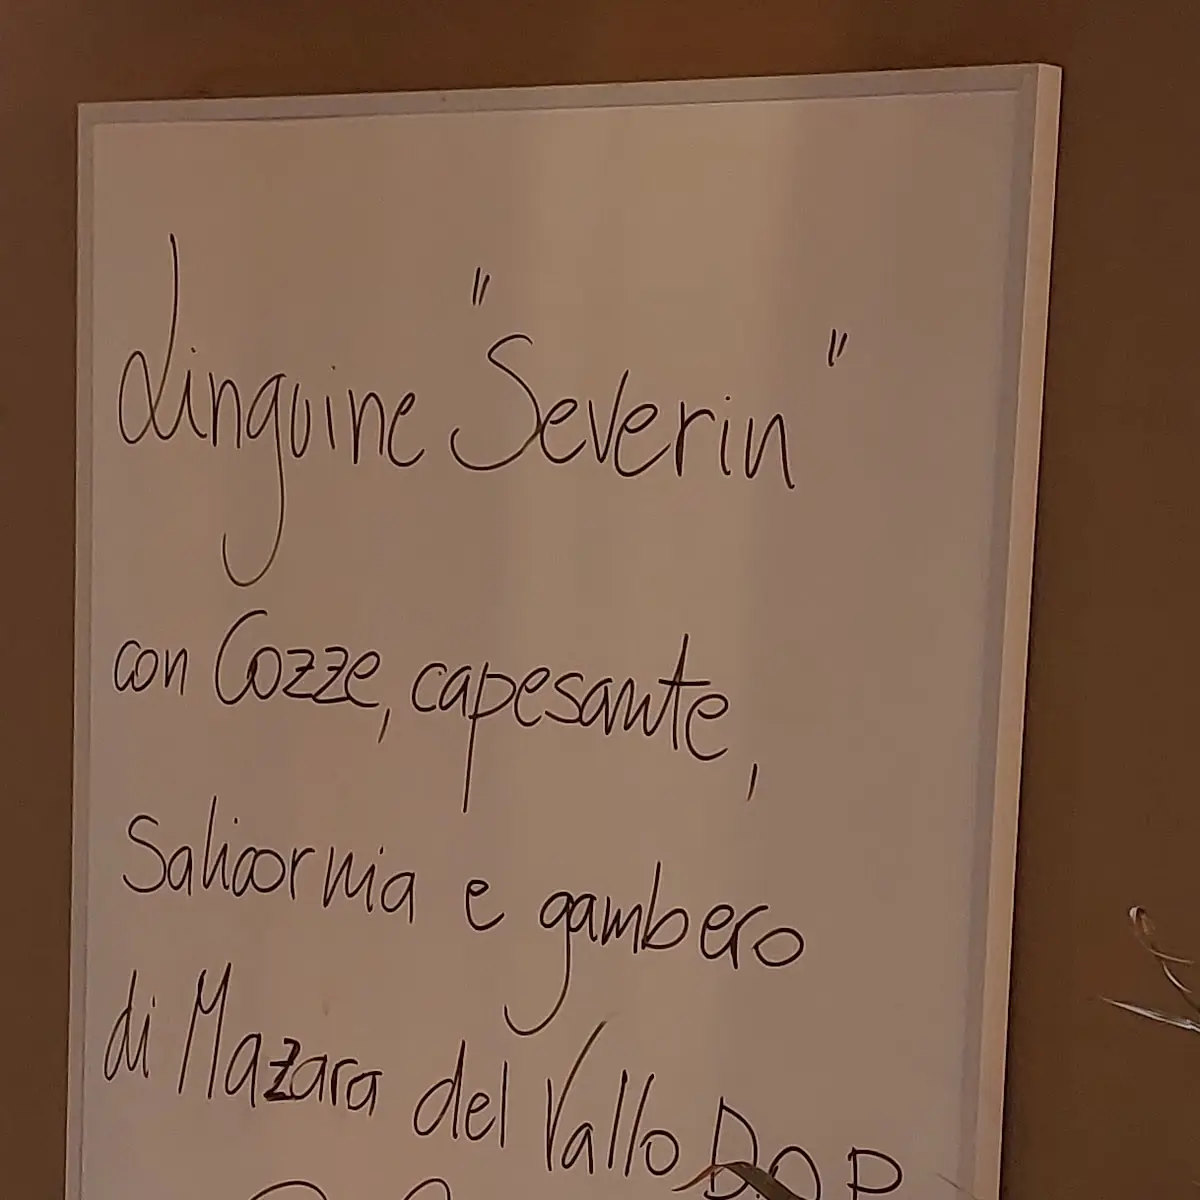 Linguine "Severin"
con Cozze, capesante,
Salicornia e gambero
di Mazara del Vallo D.O.P